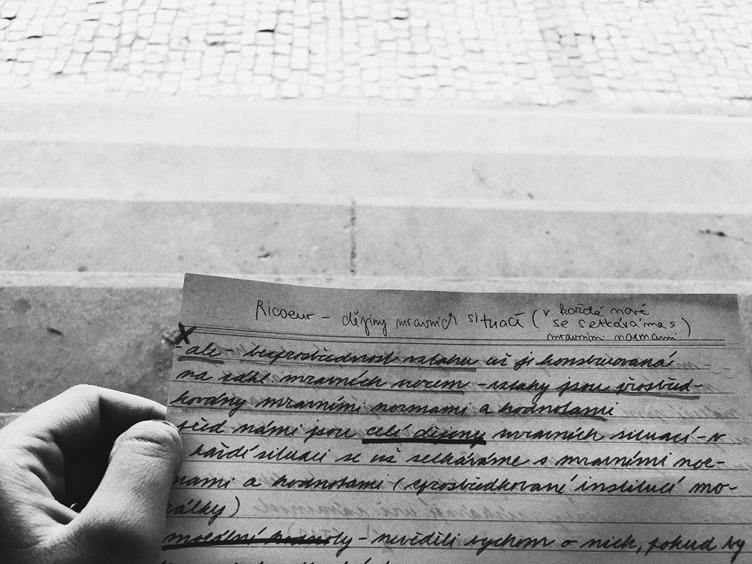 Ricoeur - dějiny mravních situací (v každé nové
se setkáváme s)
mravními normami
X
- ale - bezprostřednost vztahu už je konstruovaná
na zákl. mravních norem - vztahy jsou prostřed-
kovány mravními normami a hodnotami
před námi jsou celé dějiny mravních situací - v
každé situaci se už setkáváme s mravními nor-
mami a hodnotami (zprostředkované institucí mo-
rálky)
morální hodnoty - nevěděli bychom o nich, pokud by